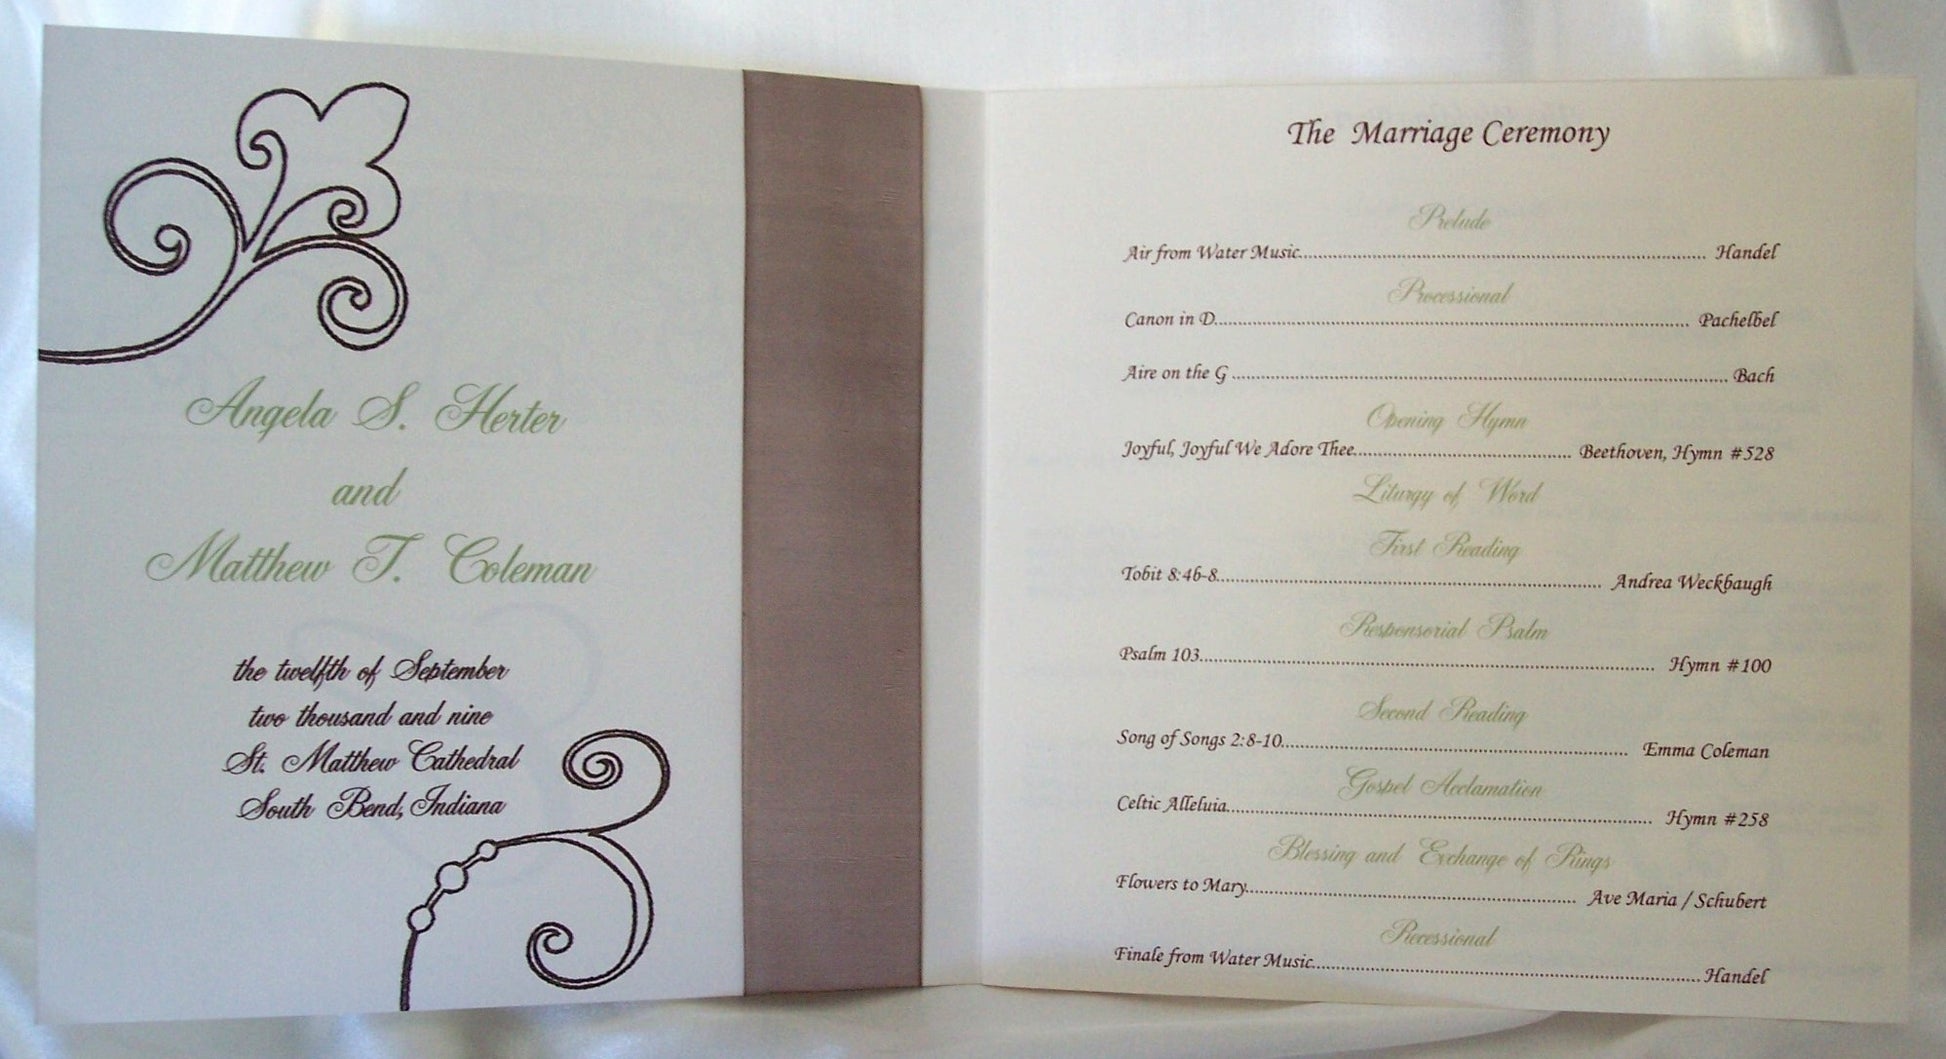 Angela S. Herter
and
Matthew T. Coleman
the twelfth of September
two thousand and nine
St. Matthew Cathedral
South Bend, Indiana
The Marriage Ceremony
Prelude
Air from Water Music.......... Handel
Processional
Canon in D.......... Pachelbel
Aire on the G .......... Bach
Opening Hymn
Joyful, Joyful We Adore Thee.......... Beethoven, Hymn #528
Liturgy of Word
First Reading
Tobit 8:4b-8.......... Andrea Weckbaugh
Responsorial Psalm
Psalm 103.......... Hymn #100
Second Reading
Song of Songs 2:8-10.......... Emma Coleman
Gospel Acclamation
Celtic Alleluia.......... Hymn #258
Blessing and Exchange of Rings
Flowers to Mary.......... Ave Maria / Schubert
Recessional
Finale from Water Music.......... Handel